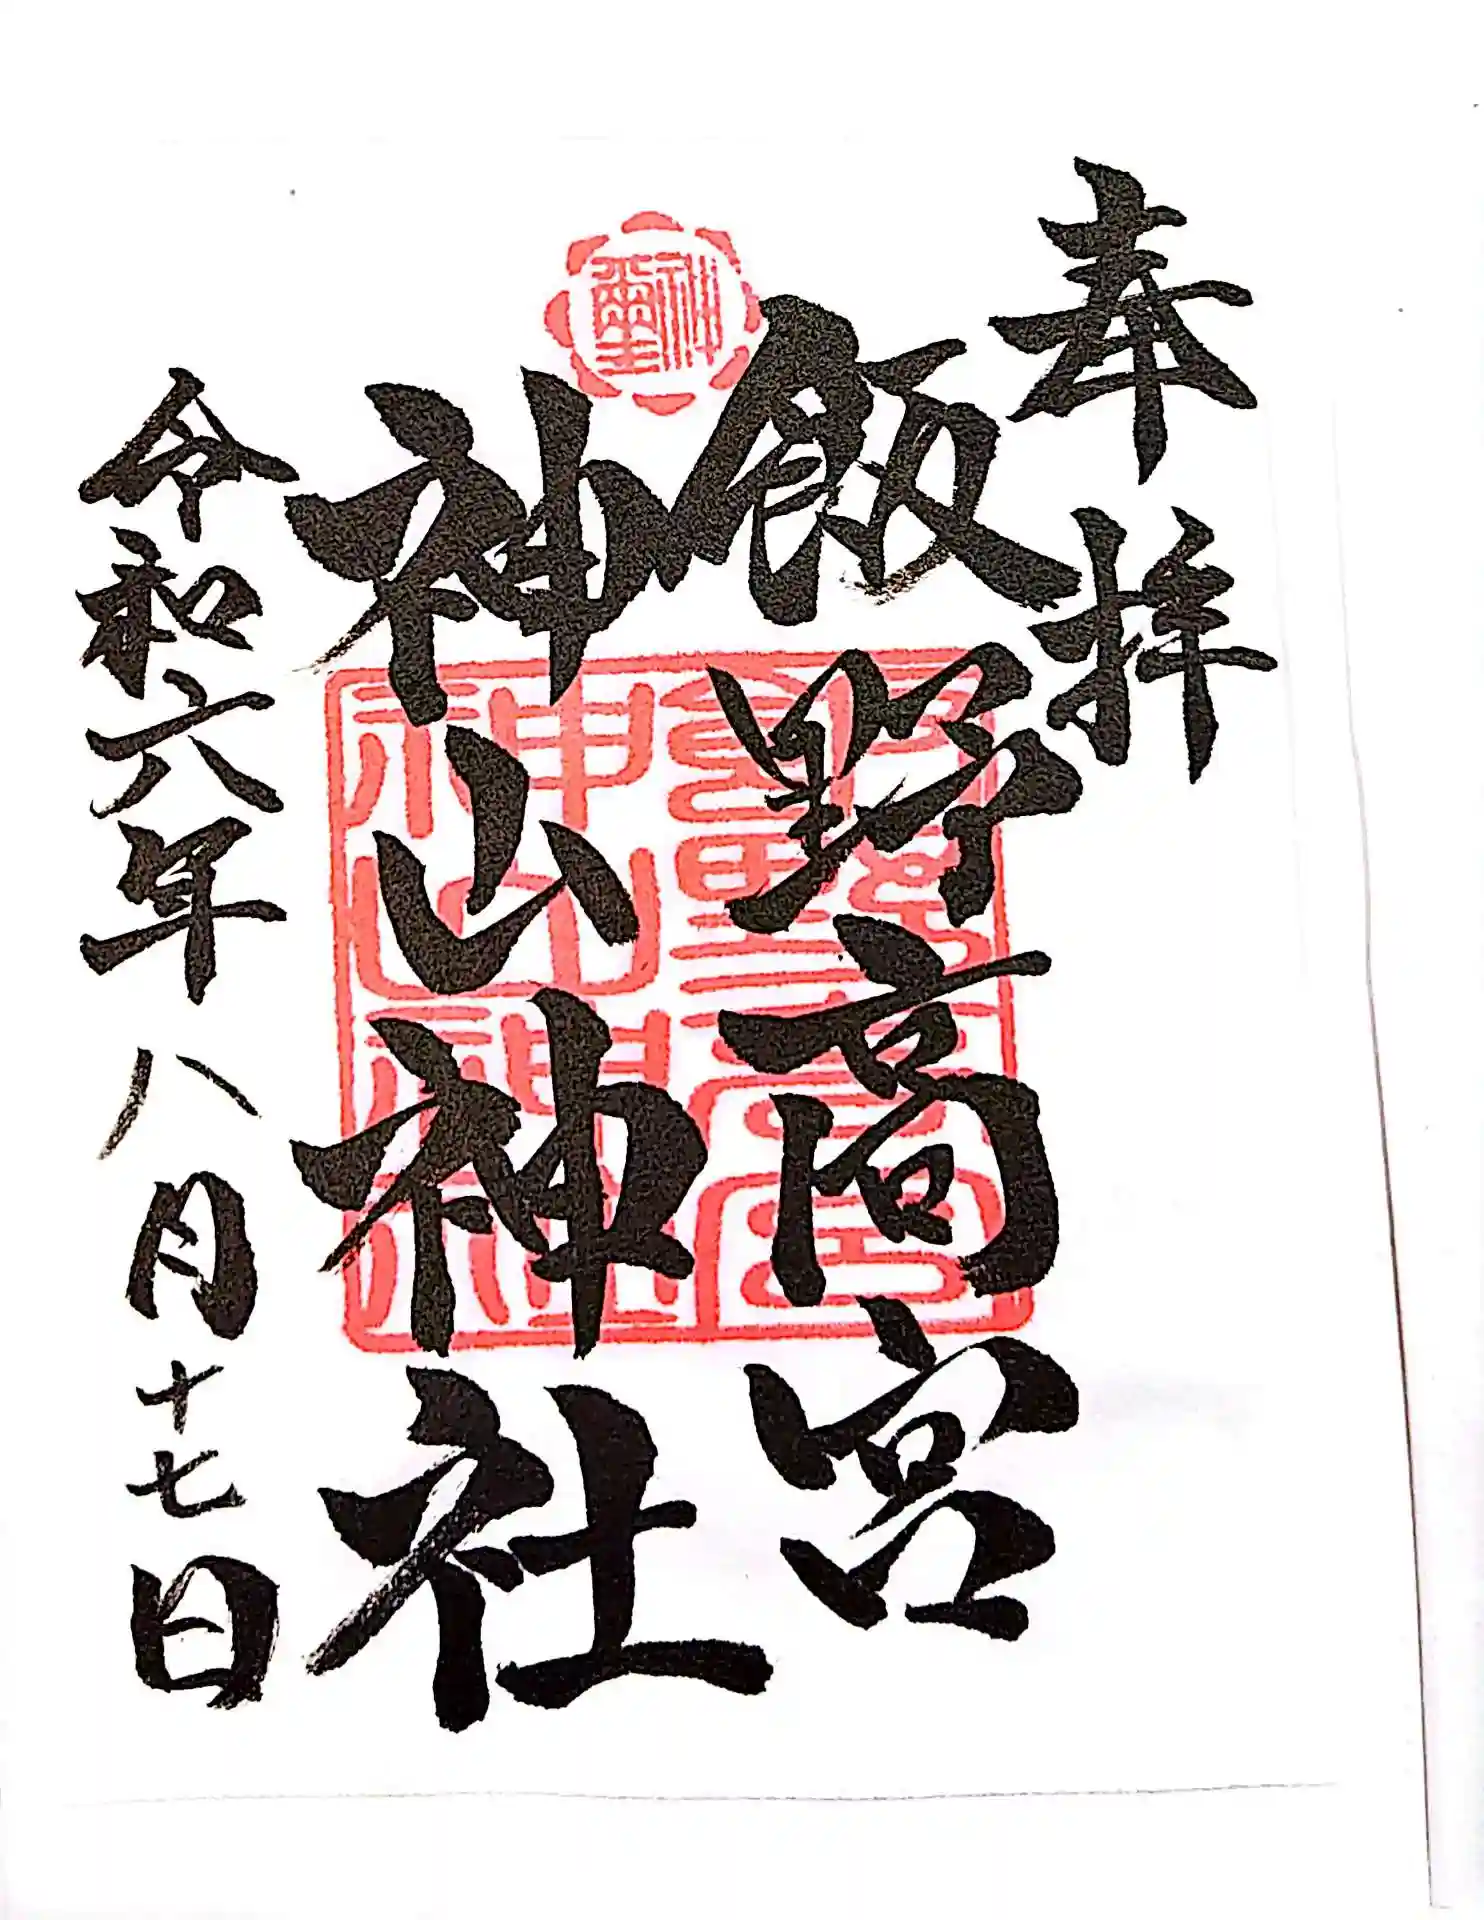 奉拝
飯野高宮
神山神社
令和六年八月十七日
飯野高宮
神山神社